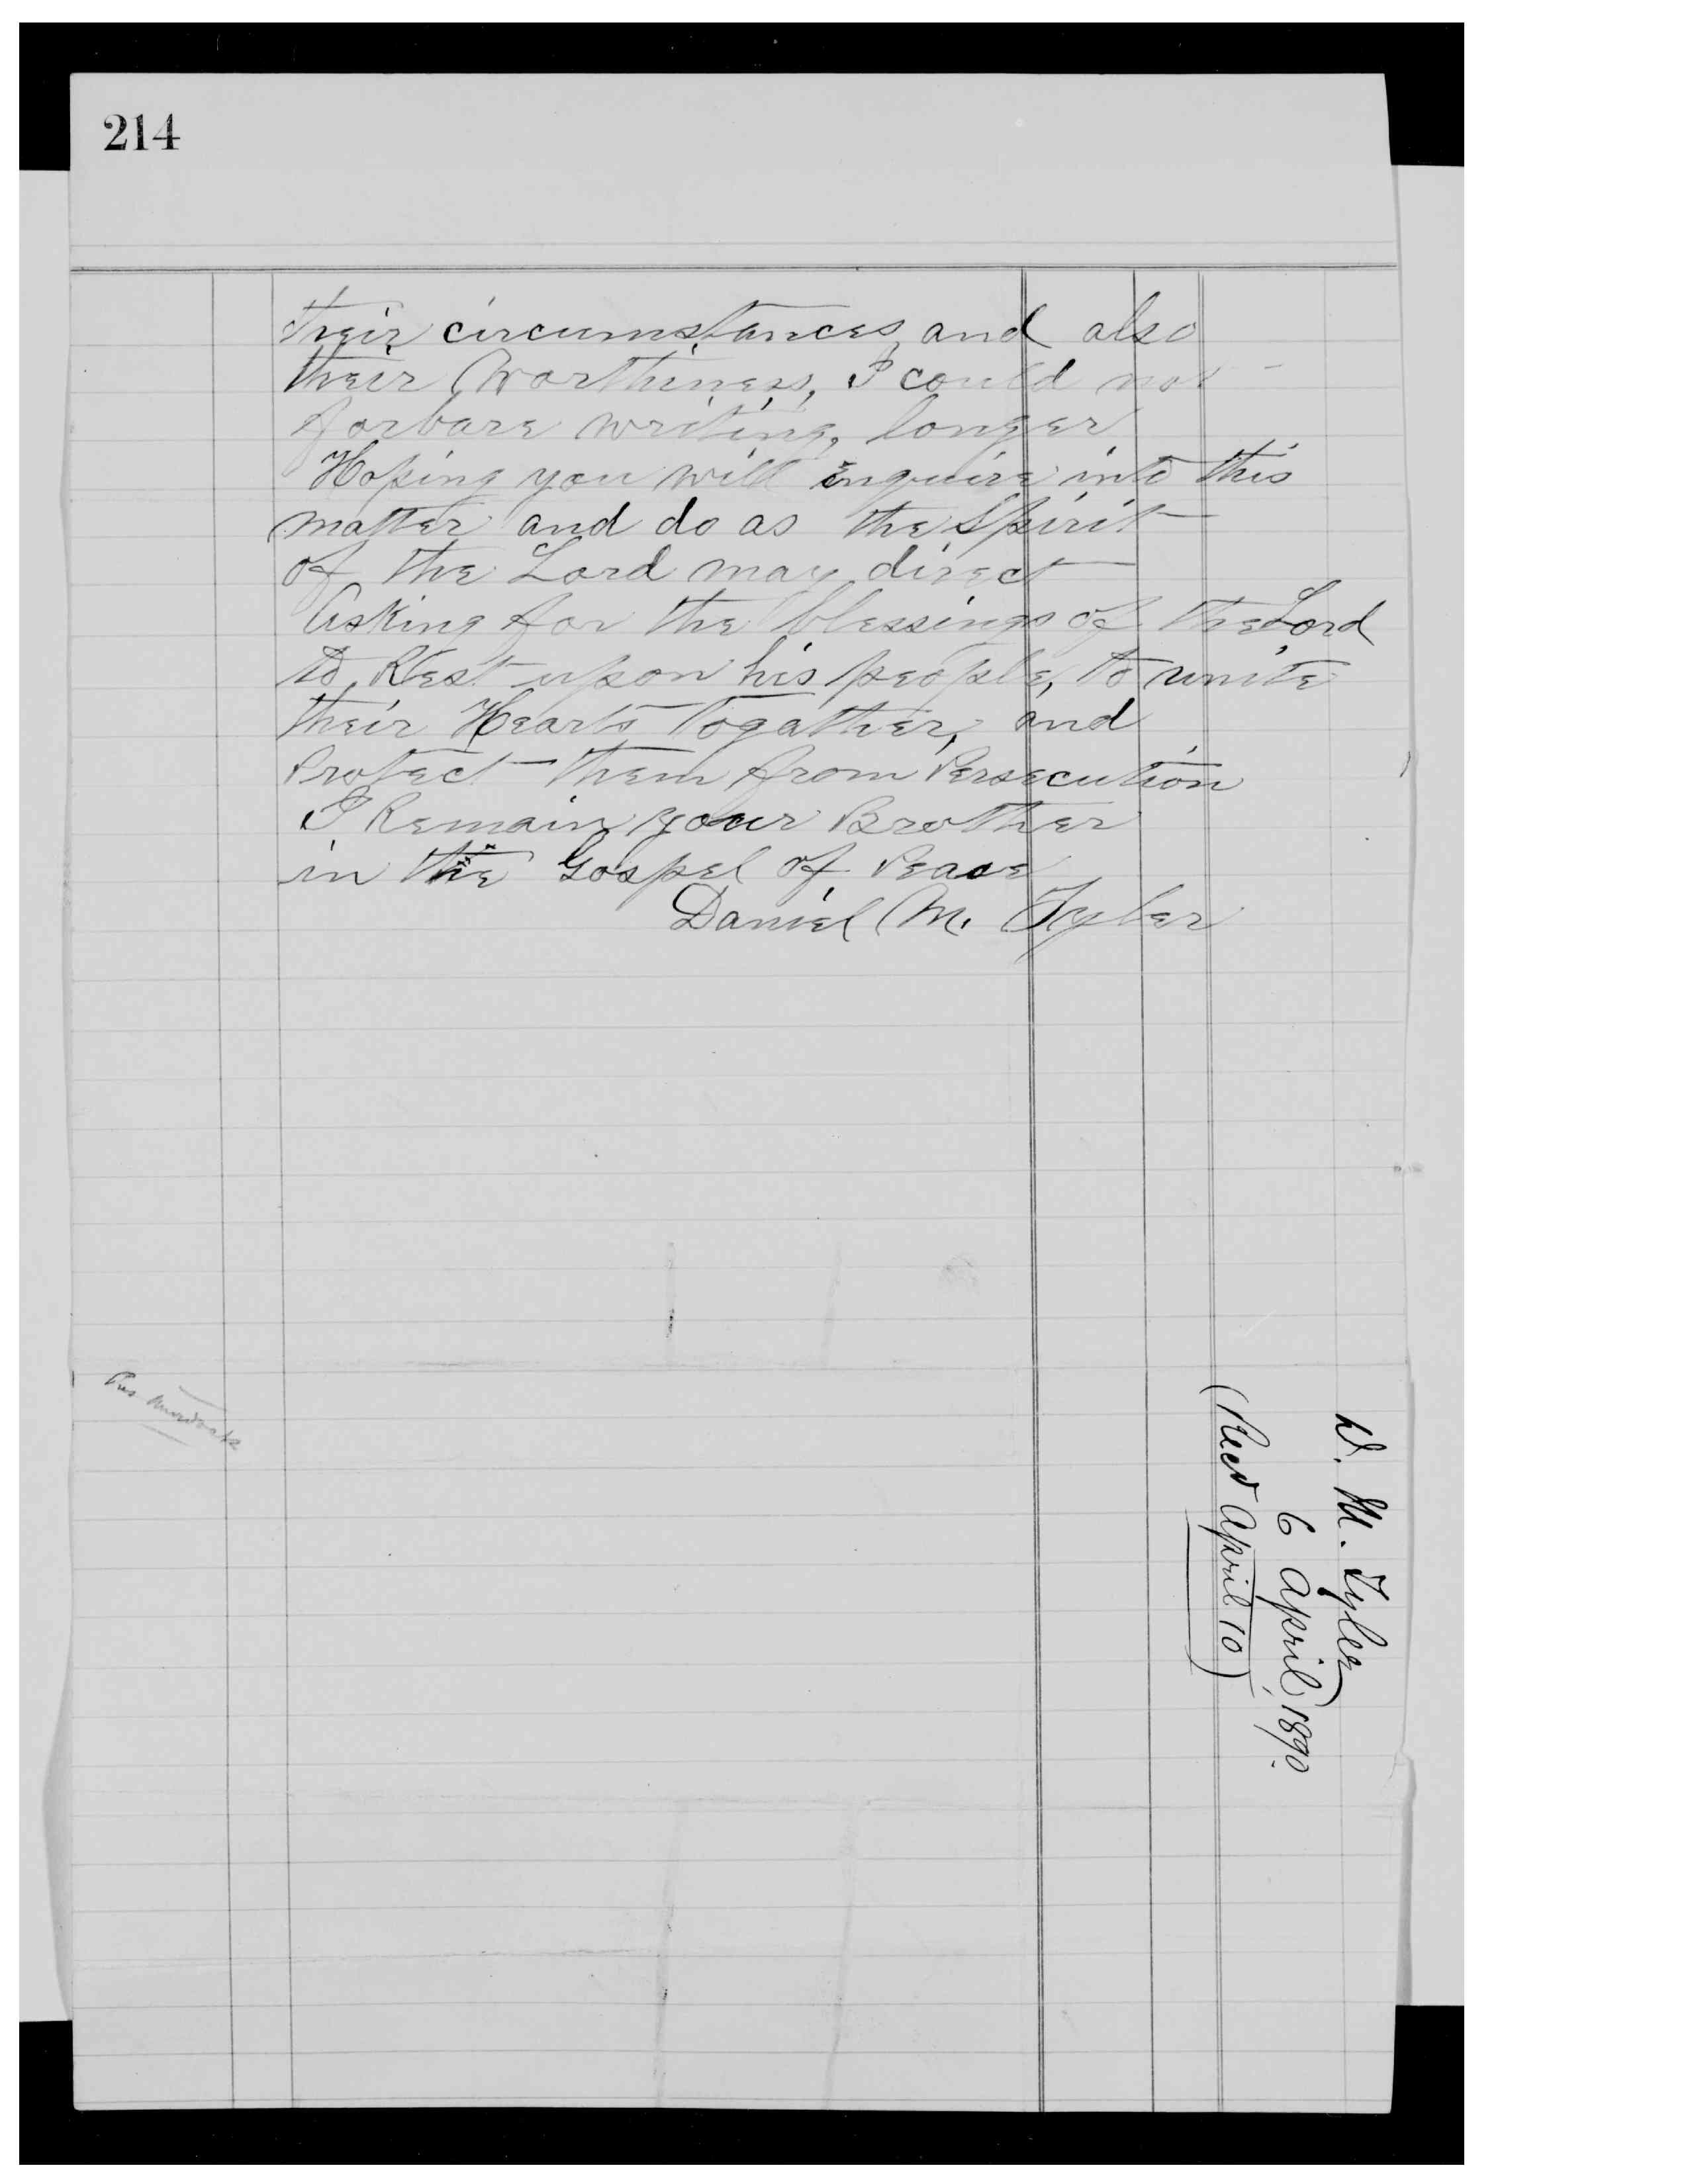 214
their circumstances, and also
their Worthiness, I could not
forbare writing, longer
Hoping you will Enquire into this
matter and do as the Spirit
of the Lord may direct
Asking for the blessings of the Lord
to Rest upon his people, to unite
their Hearts Togather, and
Protect them from Persecution
I Remain your Brother
in the Gospel of Peace
Daniel M. Tyler
D. M. Tyler
6 April, 1890.
(Recd April 10)